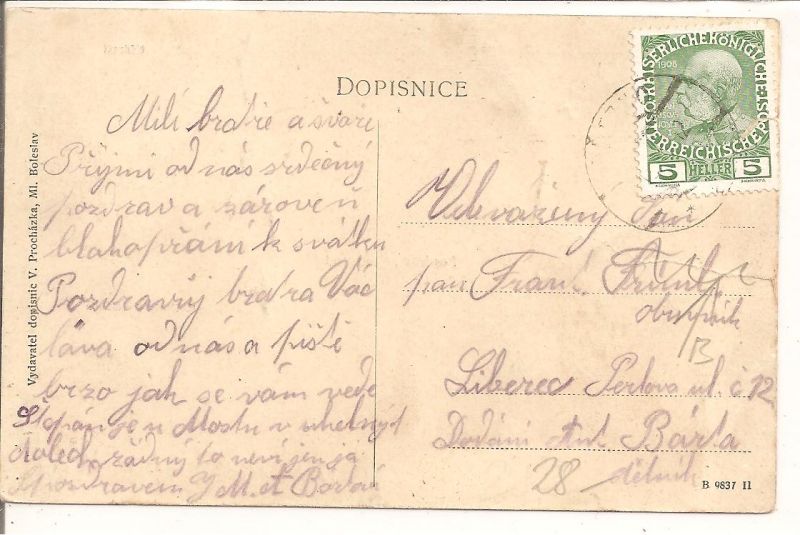 DOPISNICE
Milí bratře a švaře
Přijmi od nás srdečný
pozdrav a zároveň
blahopřání k svátku
Pozdravuj bratra Vác
láva od nás a piště
brzo jak se vám vede
Štěpán je u Mostu v uhelných
dolech žádný to neví jen já
S pozdravem J M. A Bárta
Vydavatel dopisnic V. Procházka, Ml. Boleslav
KAISERLICHEKÖNIGLICHE
ÖSTERREICHISCHEPOST
1908
5 HELLER 5
Velevážený Pan
pan Frant.
obuvník
B
Liberec Perlova ul. č 12
Dodání Ant Bárta
dělník
28
B 9837 II